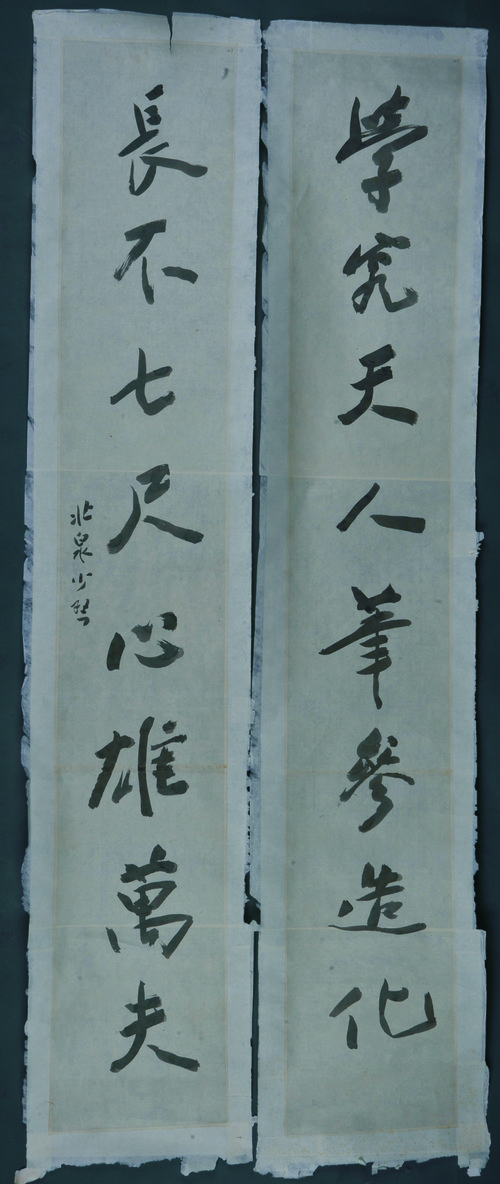 學究天人筆參造化
長不七尺心雄萬夫
泉少